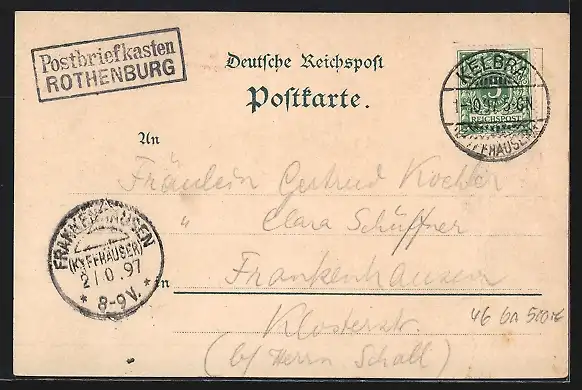 Postbriefkasten
ROTHENBURG
Deutsche Reichspost
Postkarte.
KELBRA
1 10 97 5-6N
(KYFFHÄUSER)
5
REICHSPOST
An
Fräulein Gertrud Koehler
" Clara Schüffner
FRANKENHAUSEN
(KYFFHÄUSER)
2/10.97
* 8-9V. *
in
Frankenhausen
Klosterstr.
(b/ Herrn Schall)
46 6a